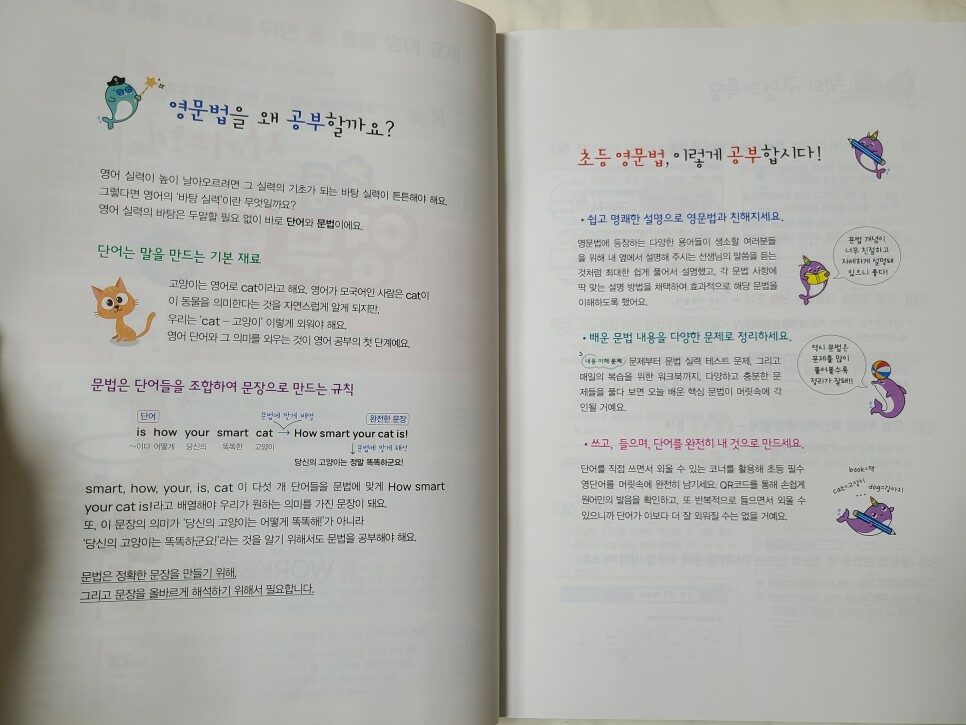 영문법을 왜 공부할까요?
영어 실력이 높이 날아오르려면 그 실력의 기초가 되는 바탕 실력이 튼튼해야 해요.
그렇다면 영어의 '바탕 실력'이란 무엇일까요?
영어 실력의 바탕은 두말할 필요 없이 바로 단어와 문법이에요.
단어는 말을 만드는 기본 재료
고양이는 영어로 cat이라고 해요. 영어가 모국어인 사람은 cat이
이 동물을 의미한다는 것을 자연스럽게 알게 되지만,
우리는 'cat – 고양이' 이렇게 외워야 해요.
영어 단어와 그 의미를 외우는 것이 영어 공부의 첫 단계예요.
문법은 단어들을 조합하여 문장으로 만드는 규칙
단어 문법에 맞게 배열 완전한 문장
is how your smart cat → How smart your cat is!
~이다 어떻게 당신의 똑똑한 고양이 문법에 맞게 해석
당신의 고양이는 정말 똑똑하군요!
smart, how, your, is, cat 이 다섯 개 단어들을 문법에 맞게 How smart
your cat is!라고 배열해야 우리가 원하는 의미를 가진 문장이 돼요.
또, 이 문장의 의미가 '당신의 고양이는 어떻게 똑똑해!'가 아니라
'당신의 고양이는 똑똑하군요!'라는 것을 알기 위해서도 문법을 공부해야 해요.
문법은 정확한 문장을 만들기 위해,
그리고 문장을 올바르게 해석하기 위해서 필요합니다.
초등 영문법, 이렇게 공부합시다!
• 쉽고 명쾌한 설명으로 영문법과 친해지세요.
영문법에 등장하는 다양한 용어들이 생소할 여러분들
을 위해 내 옆에서 설명해 주시는 선생님의 말씀을 듣는
것처럼 최대한 쉽게 풀어서 설명했고, 각 문법 사항에
딱 맞는 설명 방법을 채택하여 효과적으로 해당 문법을
이해하도록 했어요.
문법 개념이
너무 친절하고
자세하게 설명돼
있으니 좋다!
• 배운 문법 내용을 다양한 문제로 정리하세요.
내용 이해 문제 문제부터 문법 실력 테스트 문제, 그리고
매일의 복습을 위한 워크북까지, 다양하고 충분한 문
제들을 풀다 보면 오늘 배운 핵심 문법이 머릿속에 각
인될 거예요.
역시 문법은
문제를 많이
풀어볼수록
정리가 잘돼!!
• 쓰고, 들으며, 단어를 완전히 내 것으로 만드세요.
단어를 직접 쓰면서 외울 수 있는 코너를 활용해 초등 필수
영단어를 머릿속에 완전히 남기세요. QR코드를 통해 손쉽게
원어민의 발음을 확인하고, 또 반복적으로 들으면서 외울 수
있으니까 단어가 이보다 더 잘 외워질 수는 없을 거예요.
book=책
cat=고양이
dog=강아지